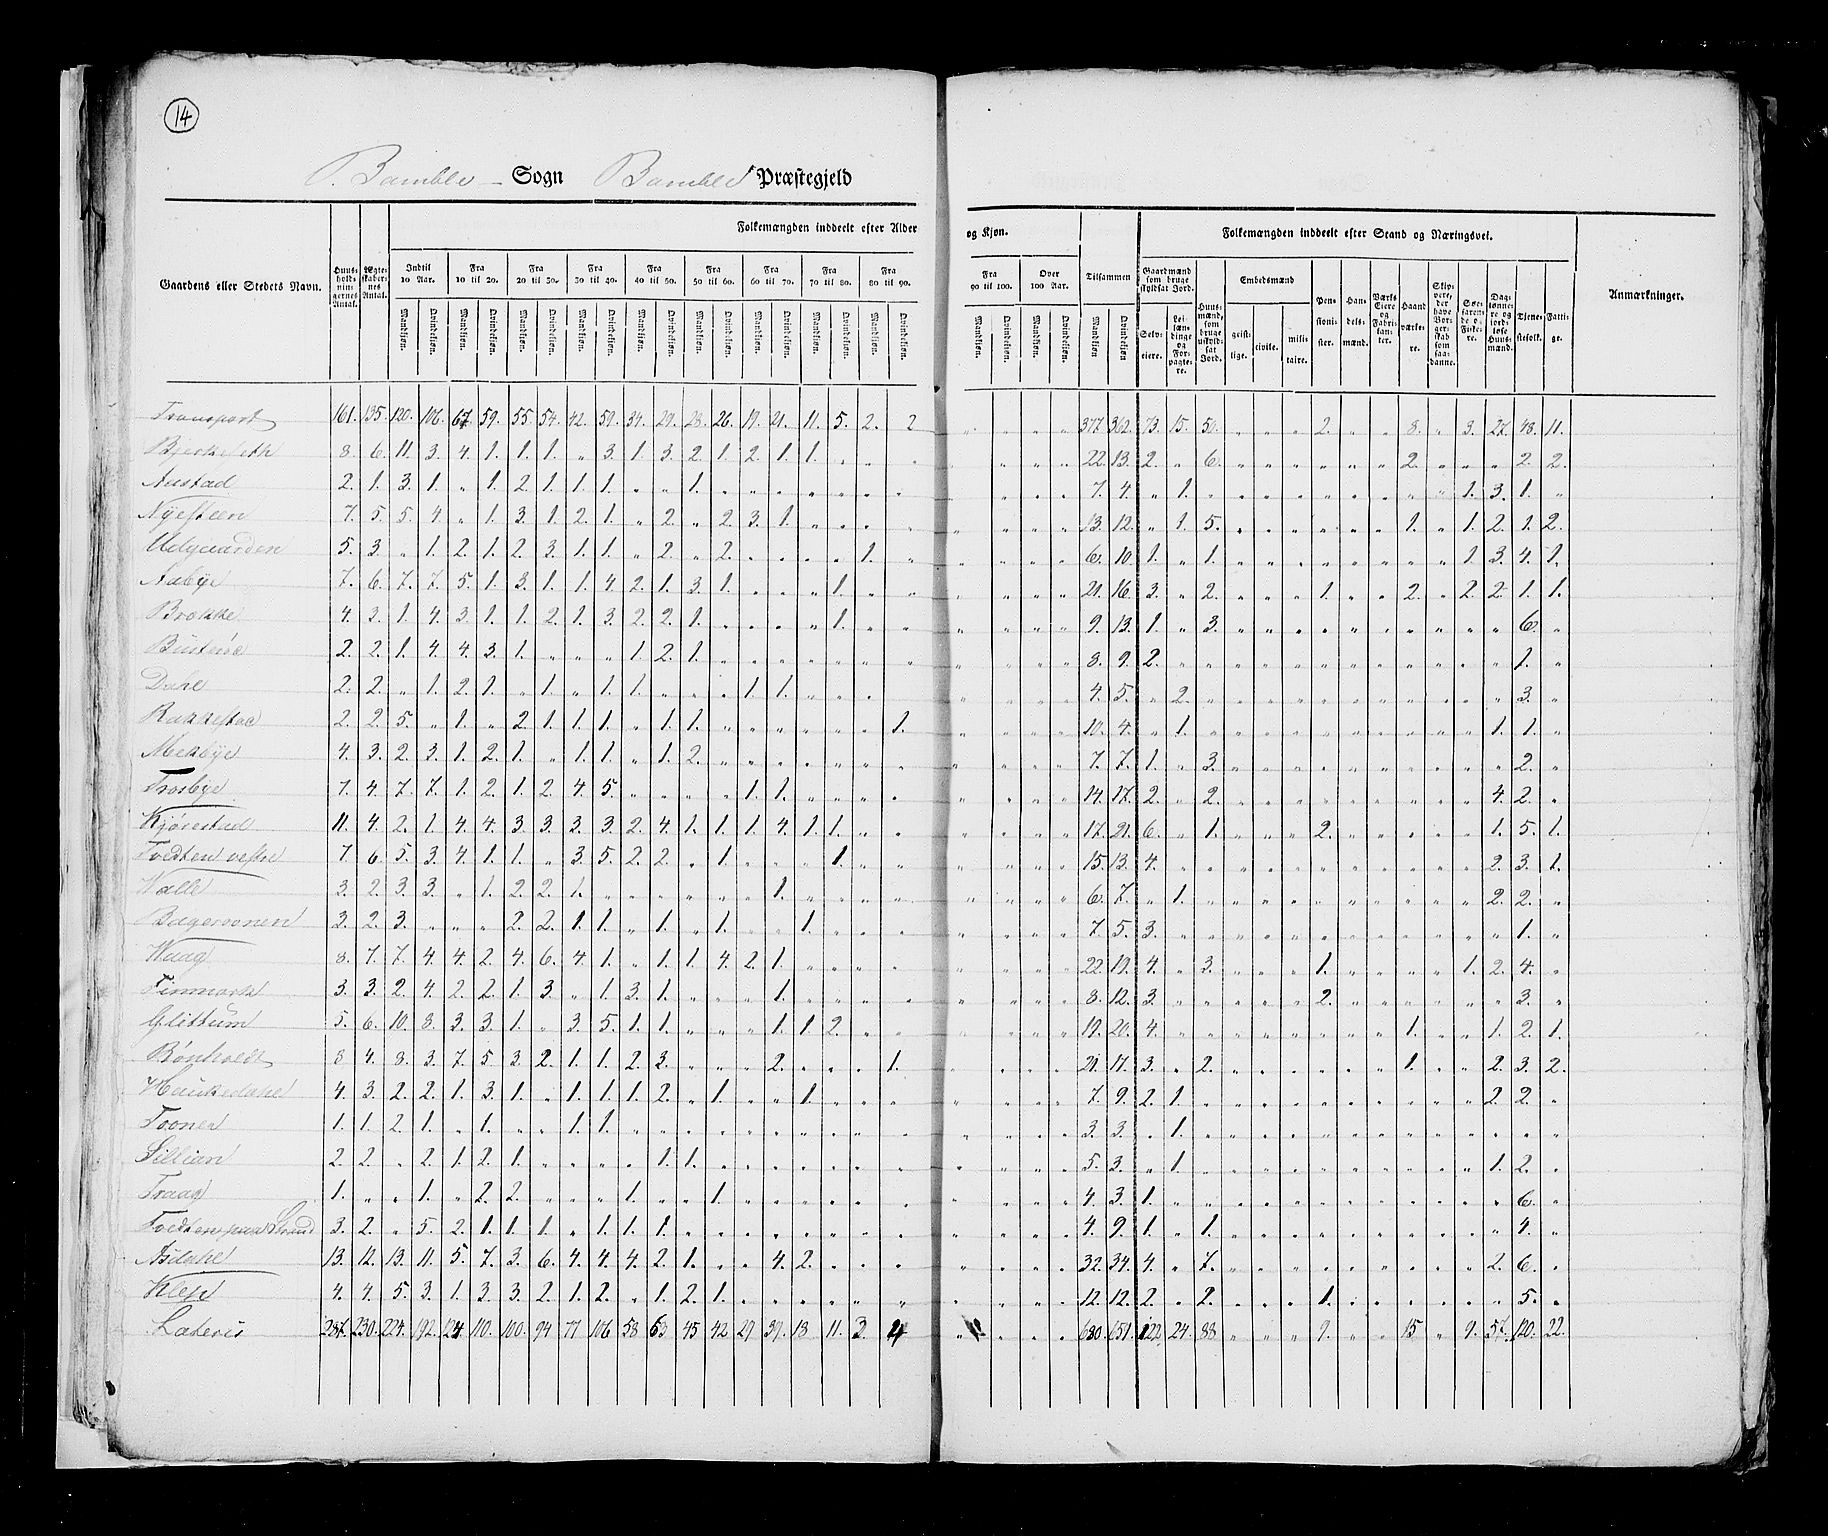 14
P. Bamble Sogn Bamble Præstegjeld
Gaardens eller Stedets Navn.
Huusholdningernes Antal.
Ægteskabernes Antal.
Folkemængden inddeelt efter Alder og Kjøn.
Indtil 10 Aar. Fra 10 til 20. Fra 20 til 30. Fra 30 til 40. Fra 40 til 50. Fra 50 til 60. Fra 60 til 70. Fra 70 til 80. Fra 80 til 90. Fra 90 til 100. Over 100 Aar. Tilsammen
Mandkjøn. Qvindekjøn.
Folkemængden inddeelt efter Stand og Næringsvei.
Gaardmænd som bruge skyldsat Jord. Selveiere. Leilændinge og Forpagtere.
Huusmænd, som bruge uskyldsat Jord.
Embedsmænd geistlige. civile. militaire.
Pensionister. Handelsmænd. Værks Eiere og Fabrikanter. Haandværkere. Skippere, der have Borgerskab som saadanne. Søefarende og Fiskere. Daglønnere og jordløse Huusmænd. Tjenestefolk. Fattige.
Anmærkninger.
Transport 161. 135. 120. 106. 67. 59. 55. 54. 42. 59. 34. 29. 28. 26. 19. 21. 11. 5. 2. 2 " " " " 377. 362. 73. 15. 50. " " " 2. " " 8. " 3. 27. 48. 11.
8. 6. 11. 3. 4. 1. 1. 1. " 3. 1. 3. 2. 1. 2. 1. 1. " " " " " " " 22. 13. 2. " 6. " " " " " " 2. " " " 2. 2.
Austad 2. 1. 3. 1. " 1. 2. 1. 1. 1. " " 1. " " " " " " " " " " " 7. 4. " 1. " " " " " " " " " 1. 3. 1. "
Nÿesteen 7. 5. 5. 4. " 1. 3. 1. 2. 1. " 2. " 2. 3. 1. " " " " " " " " 13. 12. " 1. 5. " " " " " " 1. " 1. 2. 1. 2.
Udgaarden 5. 3. " 1. 2. 1. 2. 3. 1. 1. " 2. " 2. " " " " 1. " " " " " 6. 10. 1. " 1. " " " " " " " " 1. 3. 4. 1.
Aabÿe 7. 6. 7. 7. 5. 1. 3. 1. 1. 4. 2. 1. 3. 1. " " " 1. " " " " " " 21. 16. 3. " 2. " " " 1. " " 2. " 2. 2. 1. 1.
Brokke 4. 3. 1. 4. 3. 1. 1. 2. 1. 3. 2. 2. 1. " " " " 1. " " " " " " 9. 13. 1. " 3. " " " " " " " " " " 6. "
2. 2. 1. 4. 4. 3. 1. " " " 1. 2. 1. " " " " " " " " " " " 8. 9. 2. " " " " " " " " " " " " 1. "
Dahl 2. 2. " 1. 2. 1. " 1. " 1. 1. " " " 1. 1. " " " " " " " " 4. 5. " 2. " " " " " " " " " " " 3. "
Rakkestad 2. 2. 5. " 1. " 2. 1. 1. 1. " 1. 1. " " " " " " 1. " " " " 10. 4. " 1. " " " " " " " " " " 1. 1. "
4. 3. 2. 3. 1. 2. 1. " 1. 1. " 1. 2. " " " " " " " " " " " 7. 7. 1. " 3. " " " " " " " " " " 2. "
Trosbÿe 7. 4. 7. 7. 1. 2. 1. 2. 4. 5. " " " " 1. 1. " " " " " " " " 14. 17. 2. " 2. " " " " " " " " " 4. 2. "
Kjørestad 11. 4. 2. 1. 4. 4. 3. 3. 3. 3. 2. 4. 1. 1. 1. 4. 1. 1. " " " " " " 17. 21. 6. " 1. " " " 2. " " " " " 1. 5. 1.
Tvedten vestre 7. 6. 5. 3. 4. 1. 1. " 3. 5. 2. 2. " 1. " " " 1. " " " " " " 15. 13. 4. " " " " " " " " " " " 2. 3. 1.
Valle 3. 2. 3. 3. " 1. 2. 2. 1. " " " " " " 1. " " " " " " " " 6. 7. " 1. " " " " " " " " " " 2. 2. "
3. 2. 3. " " " 2. 2. 1. 1. " 1. " 1. " " 1. " " " " " " " 7. 5. 3. " " " " " " " " " " " " 1. "
Vaag 8. 7. 7. 4. 4. 2. 4. 6. 4. 1. " 1. 1. 4. 2. 1. " " " " " " " " 22. 19. 4. " 3. " " " 1. " " " " 1. 2. 4. "
Findmark 3. 3. 2. 4. 2. 2. 1. 3. " 1. 3. 1. " " " 1. " " " " " " " " 8. 12. 3. " " " " " 2. " " " " " " 3. "
Glittum 5. 6. 10. 8. 3. 3. 1. " 3. 5. 1. 1. " " " 1. 1. 2. " " " " " " 19. 20. 4. " " " " " " " " 1. " " 1. 2. 1.
Bønholdt 8 4. 8. 3. 7. 5 3 2. 1. 1. 2 3. " " " 2. " " " 1. " " " " 21. 17. 3. " 2. " " " " " " 1. " " 2. 3. 2.
Haukedahl 4. 3. 2. 2. 1. 3. 1. " 1. 1. 1. 2. " 1. " " 1. " " " " " " " 7. 9. 2. 1. " " " " " " " " " " 2. 2. "
Toonen 1. 1. 2. 1. " 1. " " 1. 1. " " " " " " " " " " " " " " 3. 3. " 1. " " " " " " " " " " " " "
Sillian 2. 2. " 2. 1. 2. 1. " " " " 1. 1. " " " " " " " " " " " 5. 3. " 1. " " " " " " " " " " 1. 2. "
Traag 1. " " 1. " 2. 2. " " " 1. " " 1. " " " " " " " " " " 4. 3. 1. " " " " " " " " " " " " 6. "
Tvedten paa Strand 3. 2. " 5. 2. 1. 1. 1. " 1. 1. 1. " " " " " " " " " " " " 4. 9. 1. " 1. " " " " " " " " " " 4. "
Asdahl 13. 12. 13. 11. 5. 7. 3. 6. 4. 4. 4. 2. 1. " " 4. 2. " " " " " " " 32. 34. 4. " 7. " " " " " " " " " 2. 6. "
Klep 4. 4. 5. 3. 1. 3. 3. 2. 1. 2. " 1. 2. 1. " " " " " " " " " " 12. 12. 2. " 2. " " " 1. " " " " " " 5. "
Lateris 287. 230. 224. 192. 124. 110. 100. 94 77 106 58 63 45 42 29 39. 18 11. 3. 4 " " " " 680. 651. 122. 24. 88. " " " 9. " " 15 " 9. 57. 120. 22.